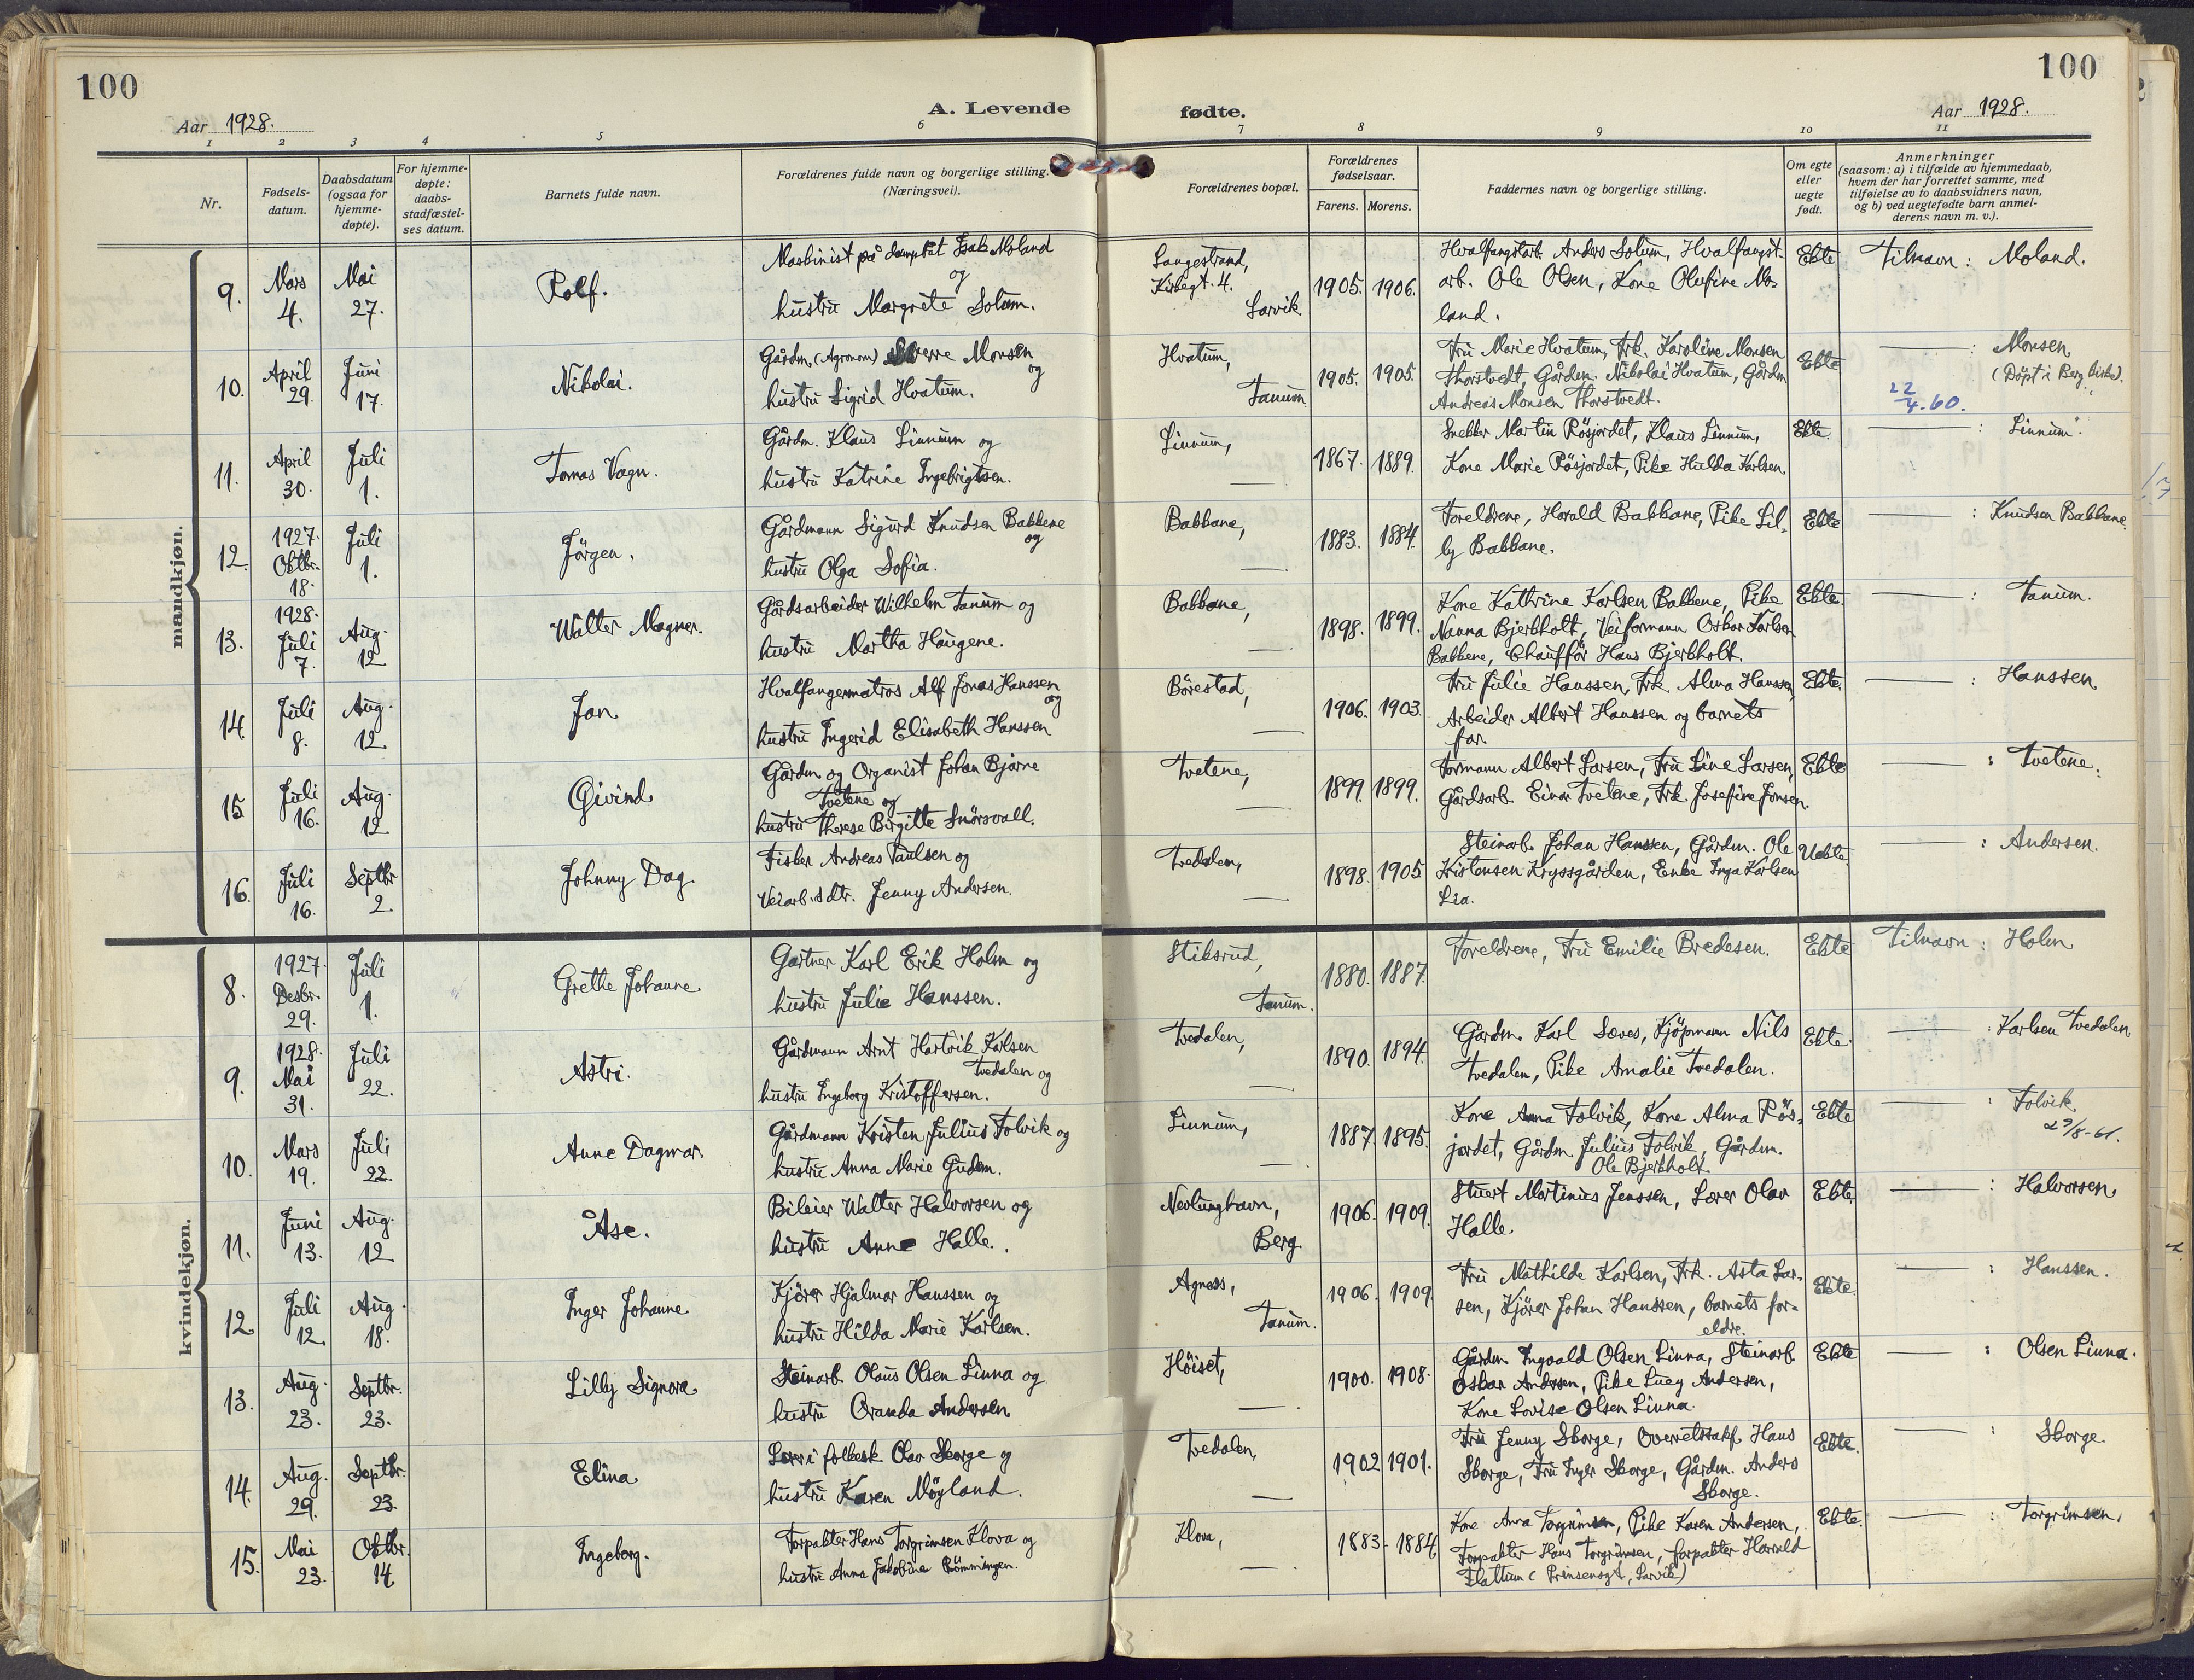 100
100
Aar 1928.
A. Levende
fødte.
Aar 1928.
1 2 3 4 5 6 7 8 9 10 11
Nr.
Fødsels-
datum.
Daabsdatum
(ogsaa for
hjemme-
døpte).
For hjemme-
døpte:
daabs-
stadfæstel-
ses datum.
Barnets fulde navn.
Forældrenes fulde navn og borgerlige stilling.
(Næringsvei).
Forældrenes bopæl.
Forældrenes
fødselsaar.
Farens. Morens.
Faddernes navn og borgerlige stilling.
Om egte
eller
uegte
født.
Anmerkninger
(saasom: a) i tilfælde av hjemmedaab,
hvem der har forrettet samme, med
tilføielse av to daabsvidners navn,
og b) ved uegtefødte barn anmel-
derens navn m. v.).
mandkjøn.
9.
Mars
4.
Mai
27.
Rolf.
Maskinist på dampbåt Isak Moland
og
hustru Margrete Solum.
Langestrand,
Kirkegt. 4.
Larvik.
1905. 1906.
Hvalfangstarb. Anders Solum, Hvalfangst-
arb. Ole Olsen, Kone Olufine Mo-
land.
Ekte
Tilnavn: Moland.
10.
April
29.
Juni
17.
Nikolai.
Gårdm. (Agronom) Sverre Monsen
og
hustru Sigrid Hvatum.
Hvatum,
Tanum.
1905. 1905.
Fru Marie Hvatum, Frk. Karoline Monsen
Thorstvedt, Gårdm. Nikolai Hvatum, Gårdm.
Andreas Monsen Thorstvedt.
Ekte
— : Monsen.
(Döpt i Berg kirke).
22/4.60.
11.
April
30.
Juli
1.
Tomas Vagn.
Gårdm. Klaus Linnum og
hustru Katrine Ingebrigtsen.
Linnum,
—
1867. 1889.
Snekker Martin Rösjordet, Klaus Linnum,
Kone Marie Rösjordet, Pike Hulda Karlsen.
Ekte.
— : Linnum.
12.
1927.
Oktbr.
18.
Juli
1.
Jörgen.
Gårdmann Sigurd Knudsen Bakkene
og
hustru Olga Sofia.
Bakkane,
—
1883. 1884.
Foreldrene, Harald Bakkane, Pike Lil-
ly Bakkane.
Ekte
— : Knudsen Bakkane.
13.
1928.
Juli
7.
Aug.
12.
Walter Magner.
Gårdsarbeider Wilhelm Tanum og
hustru Martha Haugene.
Bakkane,
—
1898. 1899.
Kone Kathrine Karlsen Bakkene, Pike
Nanna Bjerkholt, Veiformann Oskar Karlsen
Bakkene, Chafför Hans Bjerkholt.
Ekte.
— : Tanum.
14.
Juli
8.
Aug.
12.
Jan
Hvalfangermatros Alf Jonas Hanssen
og
hustru Ingerid Elisabeth Hanssen
Börestad,
—
1906. 1903.
Fru Julie Hanssen, Frk. Alma Hanssen,
Arbeider Albert Hanssen og barnets
far.
Ekte.
— : Hanssen.
15
Juli
16.
Aug.
12.
Eivind
Gårdm. og Organist Johan Bjarne
Tvetene og
hustru Therese Birgitte Snörsvall.
Tvetene,
—
1899. 1899.
Formann Albert Larsen, Fru Line Larsen,
Gårdsarb. Einar Tvetene, Frk. Josefine Jonsen.
Ekte
— : Tvetene.
16.
Juli
16.
Septbr
2.
Johnny Dag
Fisker Andreas Paulsen og
Veiarb.s dtr. Jenny Andersen.
Tvedalen,
—
1898. 1905
Steinarb. Johan Hanssen, Gårdm. Ole
Kristensen Kryssgården, Enke Inga Karlsen
Lia.
Uekte
— : Andersen.
kvindekjøn.
8.
1927.
Desbr.
29.
Juli
1.
Grethe Johanne
Gartner Karl Erik Holm og
hustru Julie Hanssen.
Stiksrud,
Tanum.
1880. 1887.
Foreldrene, Fru Emilie Bredesen.
Ekte
Tilnavn: Holm
9.
1928.
Mai
31.
Juli
22.
Astri.
Gårdmann Arnt Hartvik Karlsen
Tvedalen og
hustru Ingeborg Kristoffersen.
Tvedalen,
—
1890. 1894.
Gårdm. Karl Saves, Kjöpmann Nils
Tvedalen, Pike Amalie Tvedalen.
Ekte.
— : Karlsen Tvedalen.
10.
Mars
19.
Juli
22.
Anne Dagmar.
Gårdmann Kristen Julius Tolvik og
hustru Anna Marie Gudem.
Linnum,
—
1887. 1895.
Kone Anna Tolvik, Kone Alma Rös-
jordet, Gårdm. Julius Tolvik, Gårdm.
Ole Bjerkholt.
Ekte
— : Tolvik
29/8-61.
11.
Juni
13.
Aug.
12
Åse.
Bileier Walter Halvorsen og
hustru Anne Halle.
Nevlunghavn,
Berg.
1906. 1909.
Stuert Martinius Jenssen, Lærer Olav
Halle.
Ekte.
— : Halvorsen.
12.
Juli
12.
Aug.
18.
Inger Johanne
Kjörer Hjalmar Hanssen og
hustru Hilda Marie Karlsen.
Agnass,
Tanum.
1906. 1909.
Fru Mathilde Karlsen, Frk. Asta Lar-
sen, Kjörer Johan Hanssen, barnets for-
eldre.
Ekte.
— : Hanssen.
13.
Aug.
23.
Septbr.
23.
Lilly Signora
Steinarb. Olaus Olsen Linna og
hustru Oranda Andersen
Höiset,
—
1900. 1908.
Gårdm. Ingvald Olsen Linna, Steinarb.
Oskar Andersen, Pike Lucy Andersen,
Kone Lovise Olsen Linna.
Ekte
— : Olsen Linna.
14.
Aug.
29.
Septbr.
23.
Elina
Lærer i folkesk. Olav Skorge og
hustru Karen Möyland.
Tvedalen,
—
1902. 1901.
Fru Jenny Skorge, Overretssakf. Hans
Skorge, Fru Inger Skorge, Gårdm. Anders
Skorge.
Ekte.
— : Skorge.
15.
Mai
23.
Oktbr.
14
Ingeborg.
Forpakter Hans Torgrimsen Klova og
hustru Anna Jakobine Römmingen.
Klova,
—
1883- 1884
Kone Anna Torgrimsen, Pike Karen Andersen,
Forpakter Hans Torgrimsen, forpakter Harald
Flattum (Prinsensgt, Larvik)
Ekte.
— : Torgrimsen.